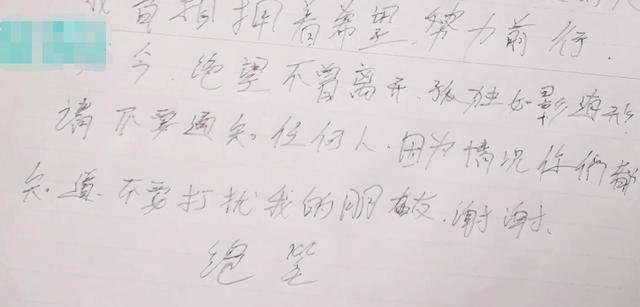 我曾相拥着希望.努力前行.
今.绝望不曾离开.孤独如影随形.
请不要通知任何人.因为情况你们都
知道.不要打扰我的朋友.谢谢.
绝笔